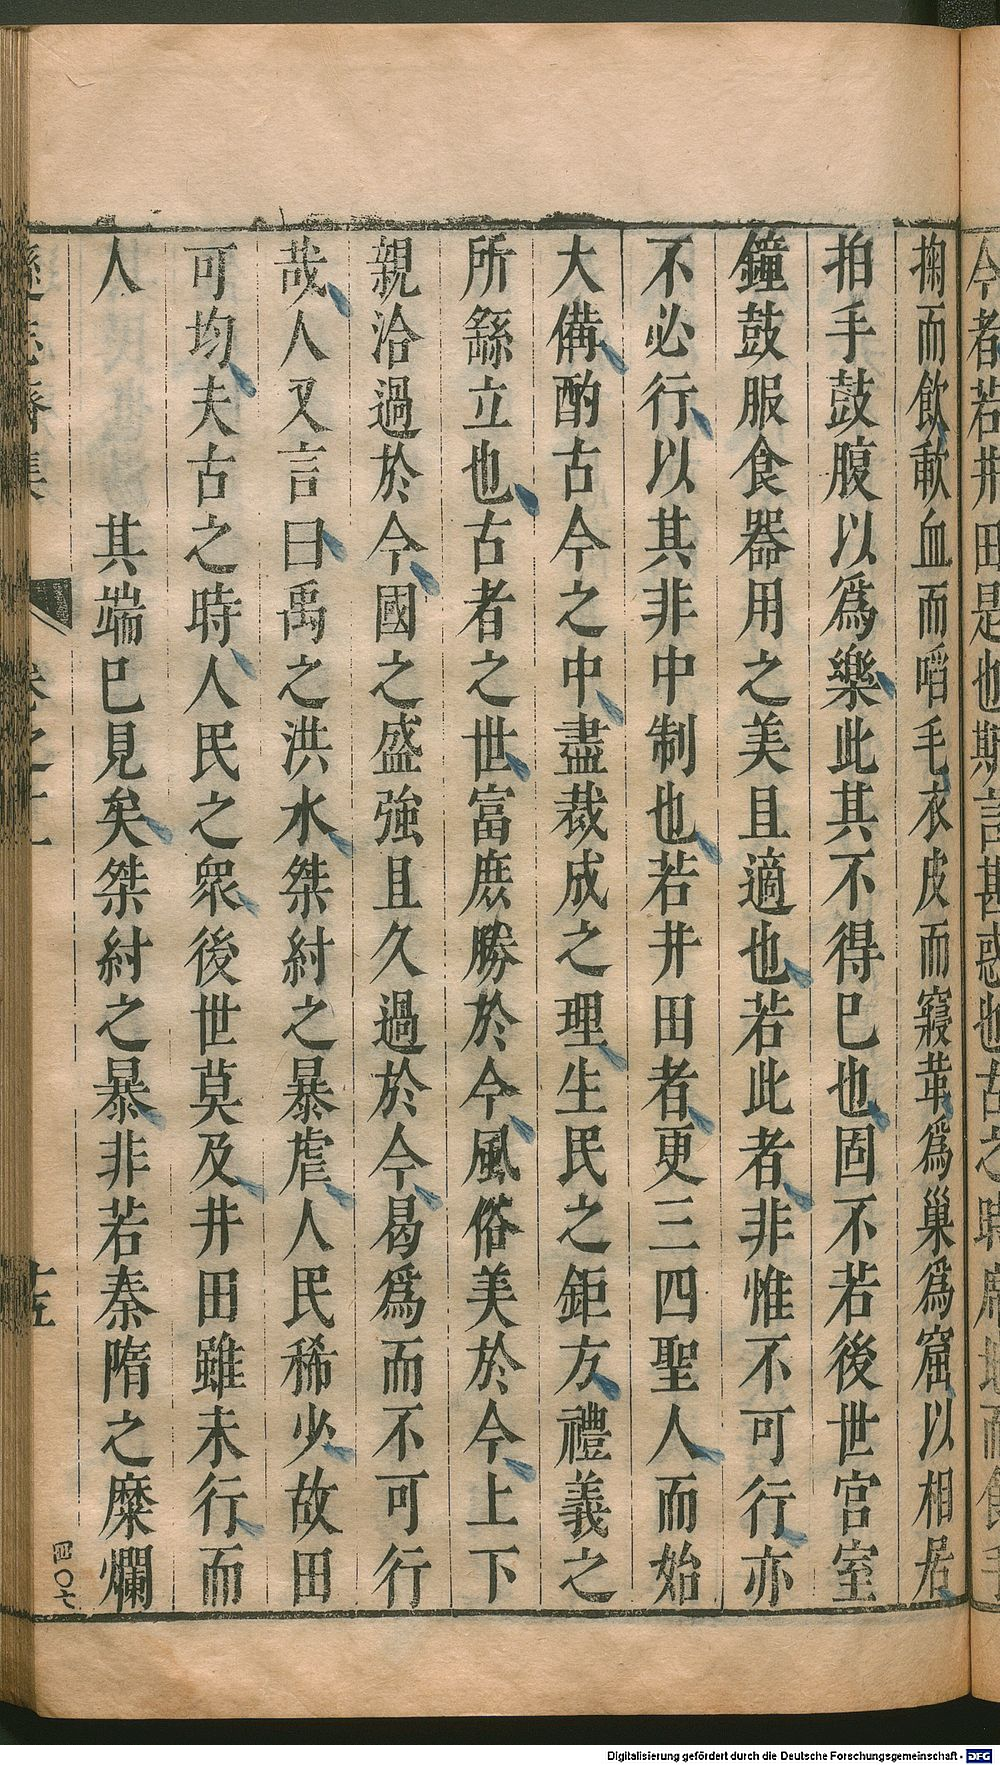 今者若井田是也斯言甚惑也古之時席地而食手
掬而飲歃血而啗毛衣皮而寢革爲巢爲窟以相居
拍手鼓腹以爲樂此其不得已也固不若後世宮室
鐘鼓服食器用之美且適也若此者非惟不可行亦
不必行以其非中制也若井田者更三四聖人而始
大備酌古今之中盡裁成之理生民之鉅方禮義之
所繇立也古者之世富庶勝於今風俗美於今上下
親洽過於今國之盛強且久過於今曷爲而不可行
哉人又言曰禹之洪水桀紂之暴虐人民稀少故田
可均夫古之時人民之衆後世莫及井田雖未行而
人其端已見矣桀紂之暴非若秦隋之糜爛
遜志齋集
卷之十一
十五
四〇七
Digitalisierung gefördert durch die Deutsche Forschungsgemeinschaft - DFG